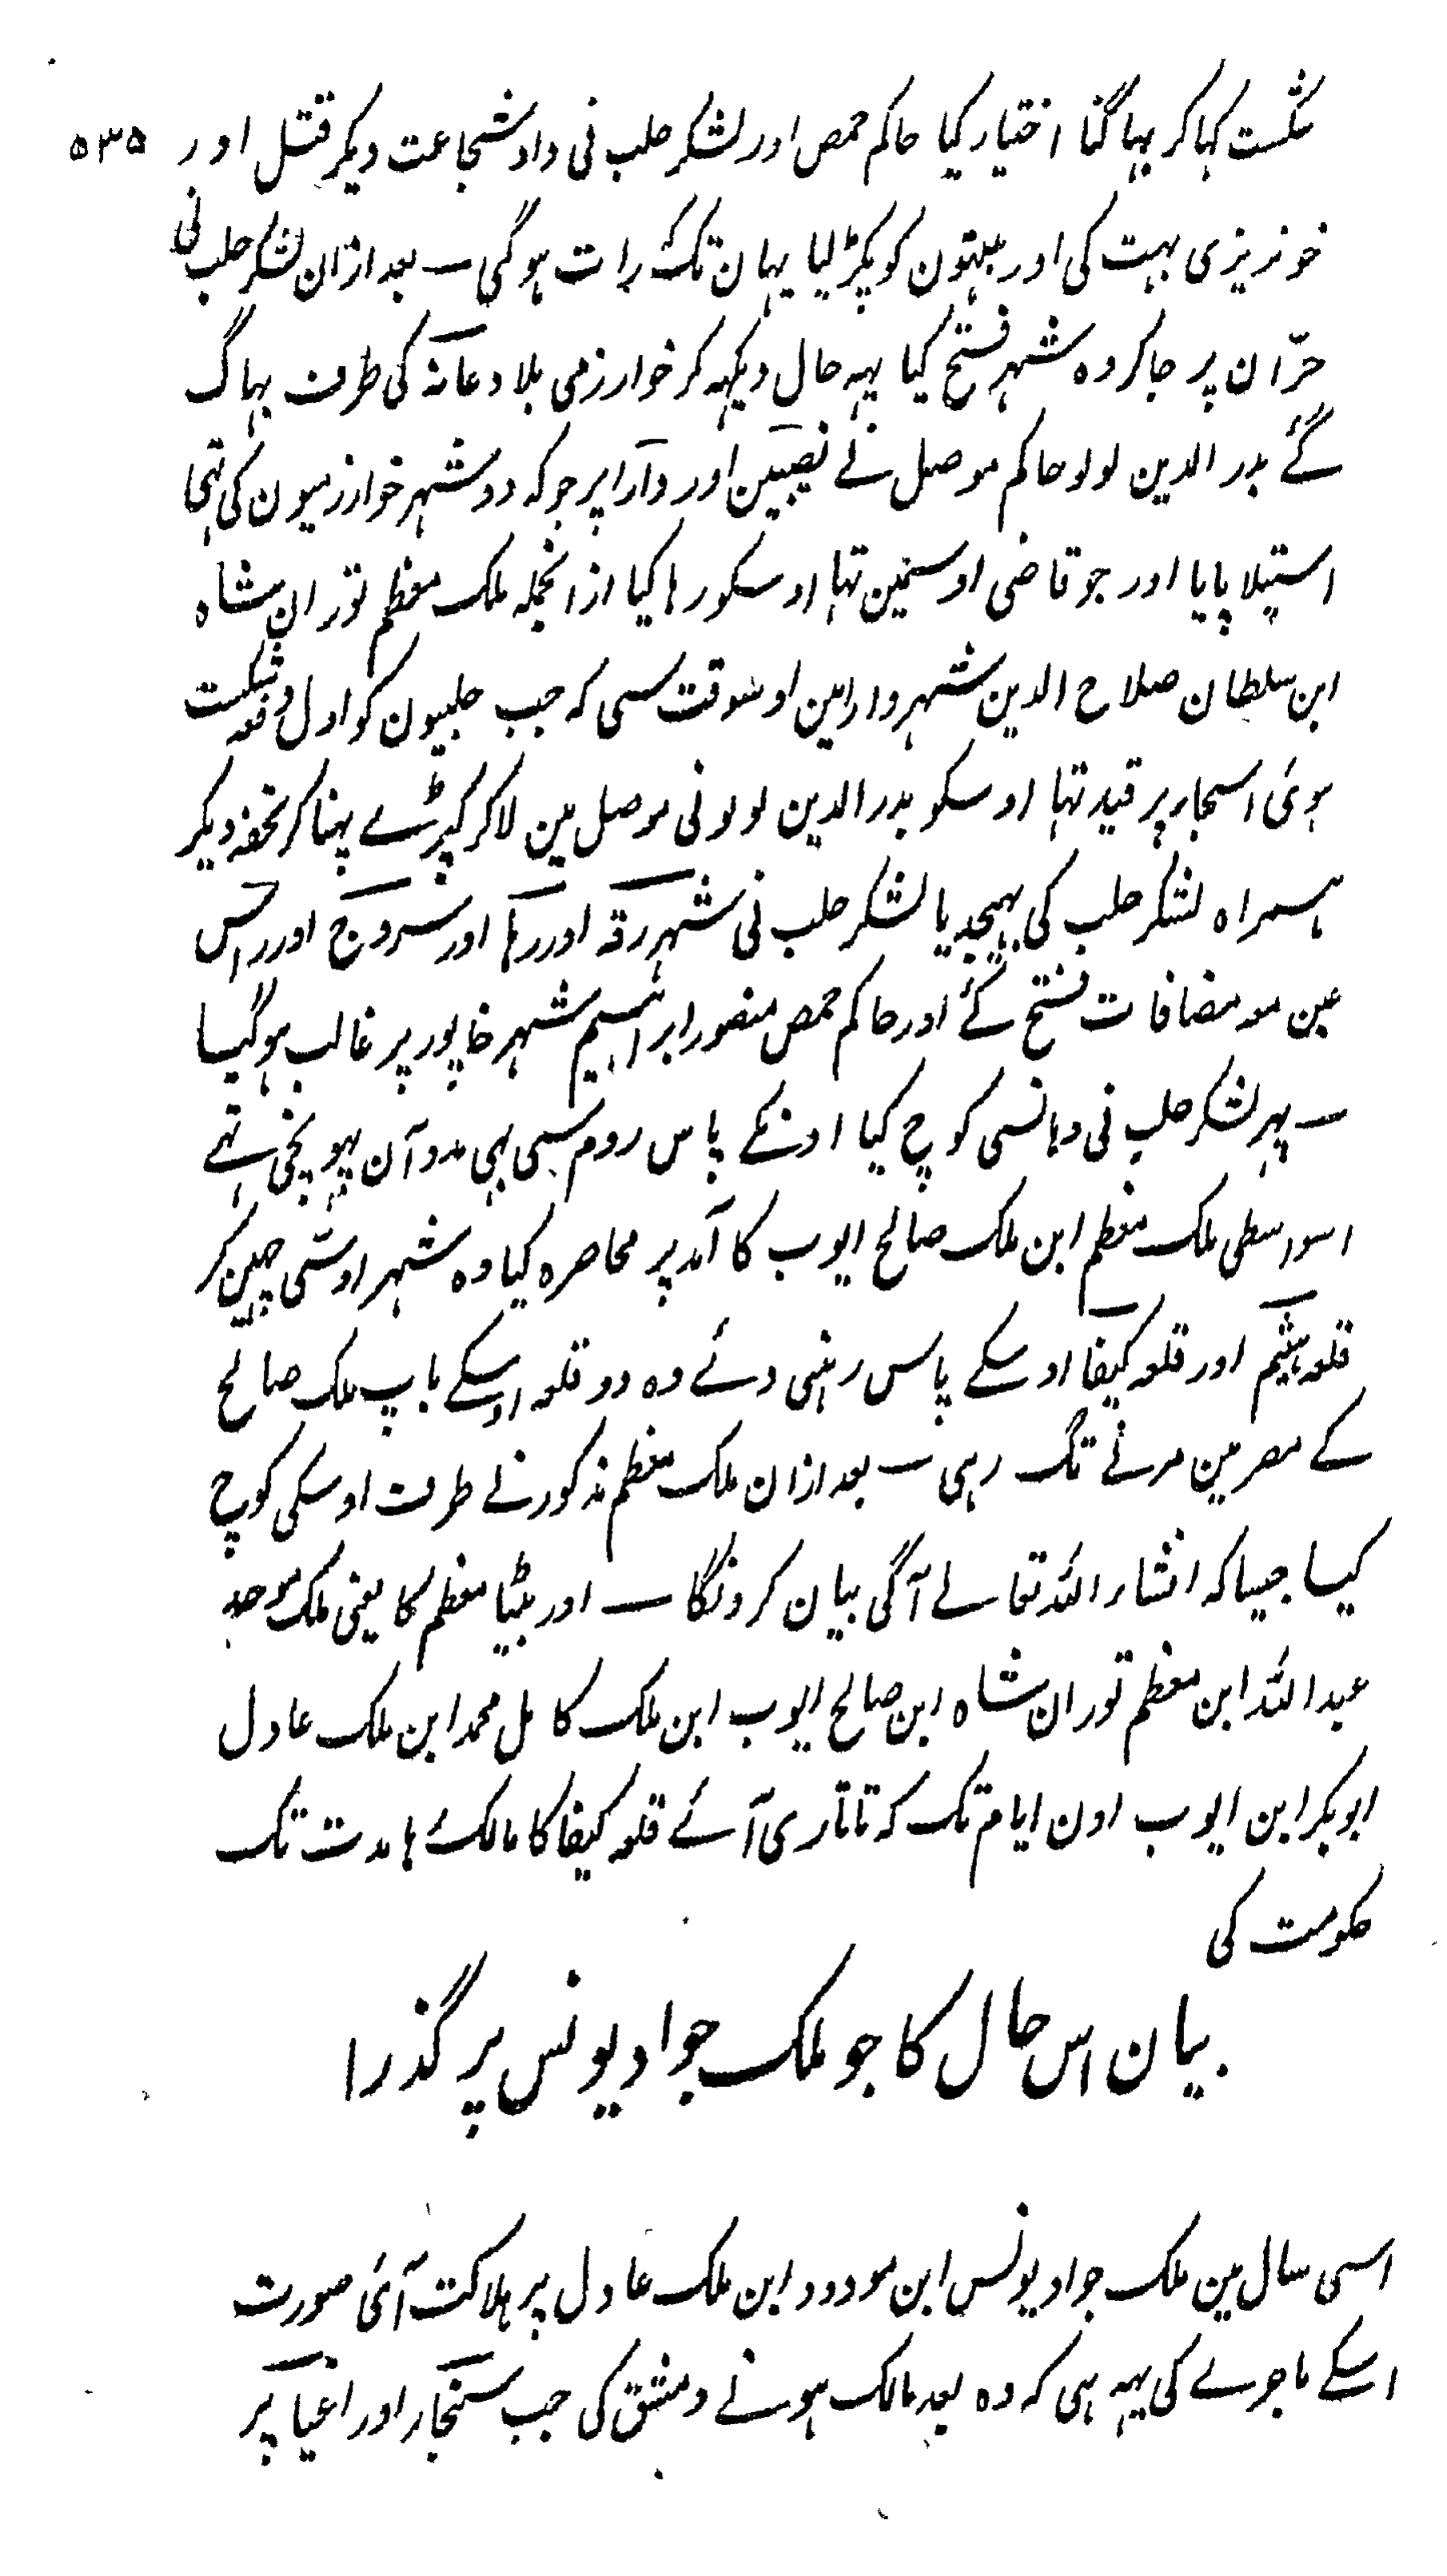 شکست کہا کر بہاگنا اختیار کیا حاکم حمص اور لشکر حلب نی داد شجاعت دیکر قتل اور ۵۳۵
خونریزی بہت کی اور بہتون کو پکڑ لیا یہان تک رات ہو گی ــ بعد ازان لشکر حلب نی
حرّان پر جا کر وہ شہر فتح کیا یہہ حال دیکہہ کر خوارزمی بلاد عانہ کی طرف بہاگ
گئے بدر الدین لولو حاکم موصل نے نصیبین اور دارا پر جو کہ دو شہر خوارزمیون کی تہی
استیلا پایا اور جو قاضی اوسمین تہا اوسکو رہا کیا ازانجملہ ملک معظم توران شاہ
ابن سلطان صلاح الدین شہر دارا مین اوسوقت سی کہ جب حلبیون کو اول دفعہ شکست
ہوئی اسجا پر قید تہا اوسکو بدر الدین لولو نی موصل مین لا کر کپڑے پہنا کر تحفہ دیکر
ہمراہ لشکر حلب کی بہیجدیا لشکر حلب نی شہر رقہ اور رہا اور سروج اور راس
عین مو مضافات فتح کئے اور حاکم حمص منصور ابراہیم شہر خاپور پر غالب ہو گیا
ــ پہر لشکر حلب نی وہانسی کوچ کیا اونکے پاس روم سی بہی مدد آن پہونچی تہے
اسواسطی ملک معظم ابن ملک صالح ایوب کا آمد پر محاصرہ کیا وہ شہر اوسّی چہین کر
قلعہ ہیثم اور قلعہ کیفا اوسکے پاس رہنی دئے وہ دو قلعہ اوسکے باپ ملک صالح
کے مصر مین مرنے تک رہی ــ بعد ازان ملک معظم مذکور نے طرف اوسکی کوچ
کیا جیسا کہ انشاء اللہ تعالے آگی بیان کرونگا ــ اور بیٹا معظم کا یعنی ملک موحد
عبد اللہ ابن معظم توران شاہ ابن صالح ایوب ابن ملک کامل محمد ابن ملک عادل
ابو بکر ابن ایوب اون ایام تک کہ تاتاری آئے قلعہ کیفا کا مالک رہا مدت تک
حکومت کی
بیان اس حال کا جو ملک جواد یونس پر گذرا
اسی سال مین ملک جواد یونس ابن مودود ابن ملک عادل پر ہلاکت آئی صورت
اسکے ماجرے کی یہہ ہی کہ وہ بعد مالک ہونے دمشق کی جب سنجار اور اعیا پر